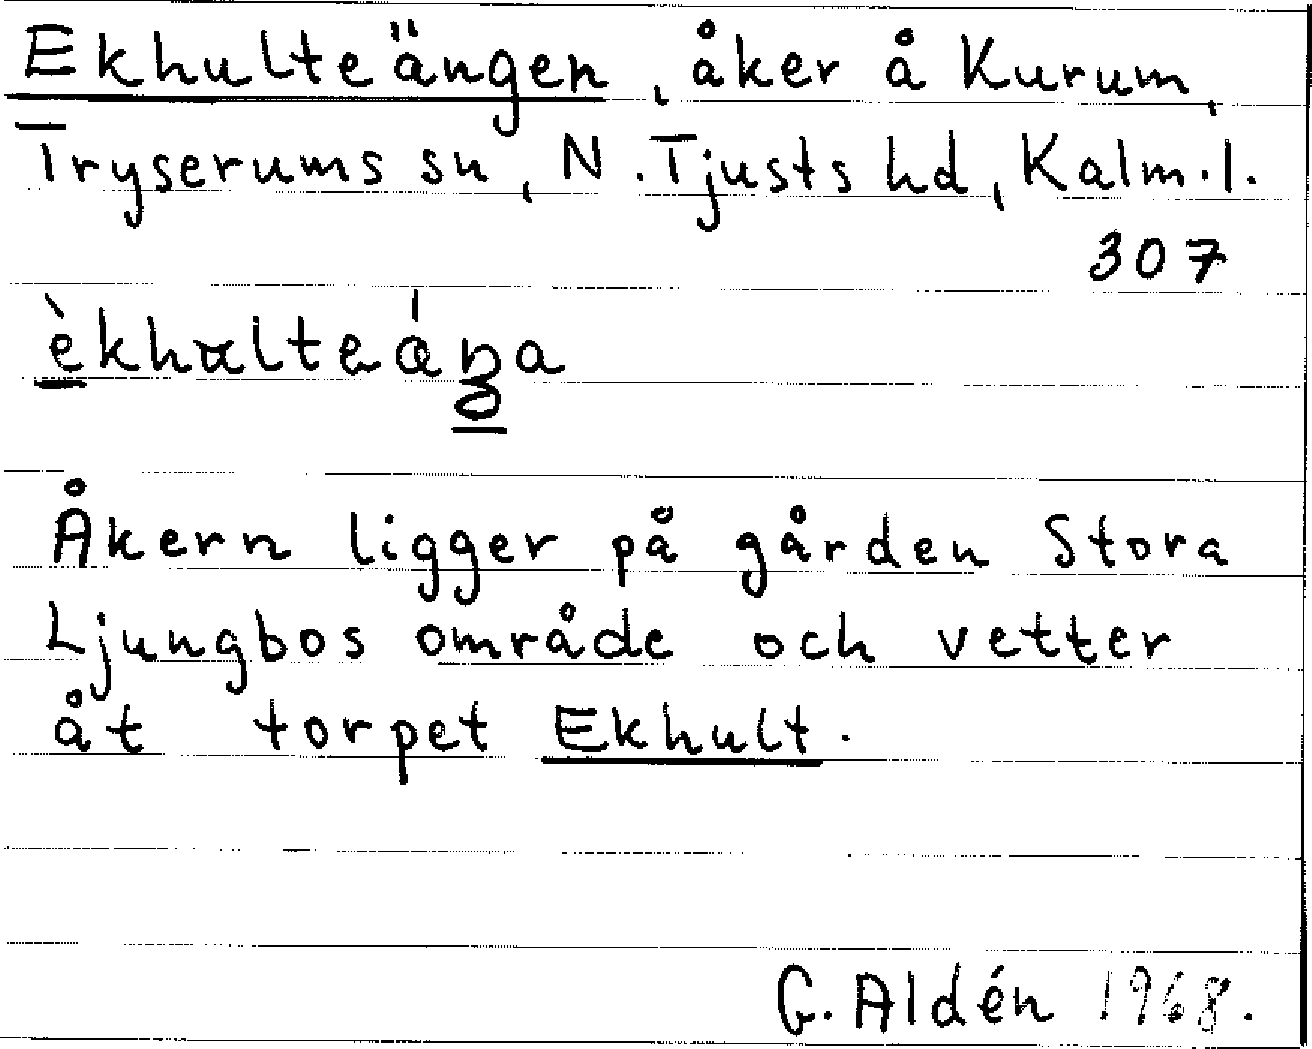 Ekhulteängen, åker å Kurum,
Tryserums sn, N. Tjusts hd, Kalm.l.
307
Åkern ligger på gården Stora
Ljungbos område och vetter
åt torpet Ekhult.
G. Aldén 1968.